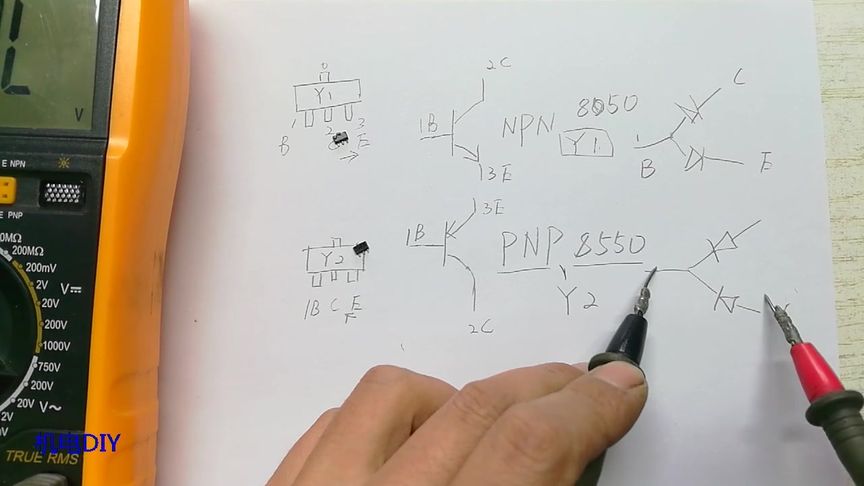 V
E NPN
E PNP
0MΩ
200MΩ
200mV
2V
20V
200V
1000V
750V
200V
20V
2V
V⎓
V~
TRUE RMS
Y1
1
2
3
B
C
E
2C
1B
3E
NPN 8050
Y1
1
B
C
E
Y2
1B C E
3E
1B
2C
PNP 8550
Y2